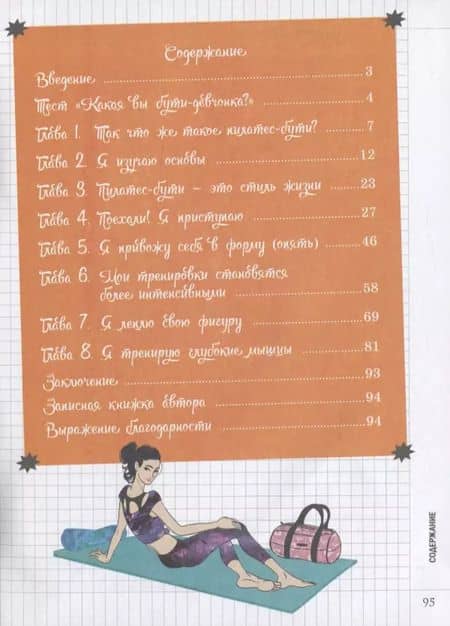 Содержание
Введение 3
Тест «Какая вы бути-девчонка?» 4
Глава 1. Так что же такое пилатес-бути? 7
Глава 2. Я изучаю основы 12
Глава 3. Пилатес-бути – это стиль жизни 23
Глава 4. Поехали! Я приступаю 27
Глава 5. Я привожу себя в форму (опять) 46
Глава 6. Мои тренировки становятся
более интенсивными 58
Глава 7. Я леплю свою фигуру 69
Глава 8. Я тренирую глубокие мышцы 81
Заключение 93
Записная книжка автора 94
Выражение благодарности 94
СОДЕРЖАНИЕ
95